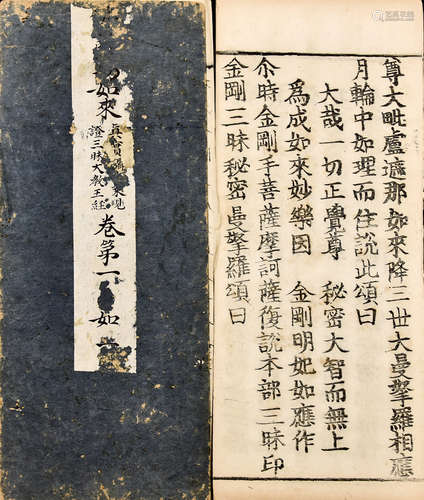 如來
真實攝 現
證三昧大教王經
卷第一 如一
尊大毗盧遮那如來降三世大曼拏羅相應
月輪中如理而住說此頌曰
大哉一切正覺尊 秘密大智而無上
為成如來妙樂因 金剛明妃如應作
尒時金剛手菩薩摩訶薩復說本部三昧印
金剛三昧秘密曼拏羅頌曰